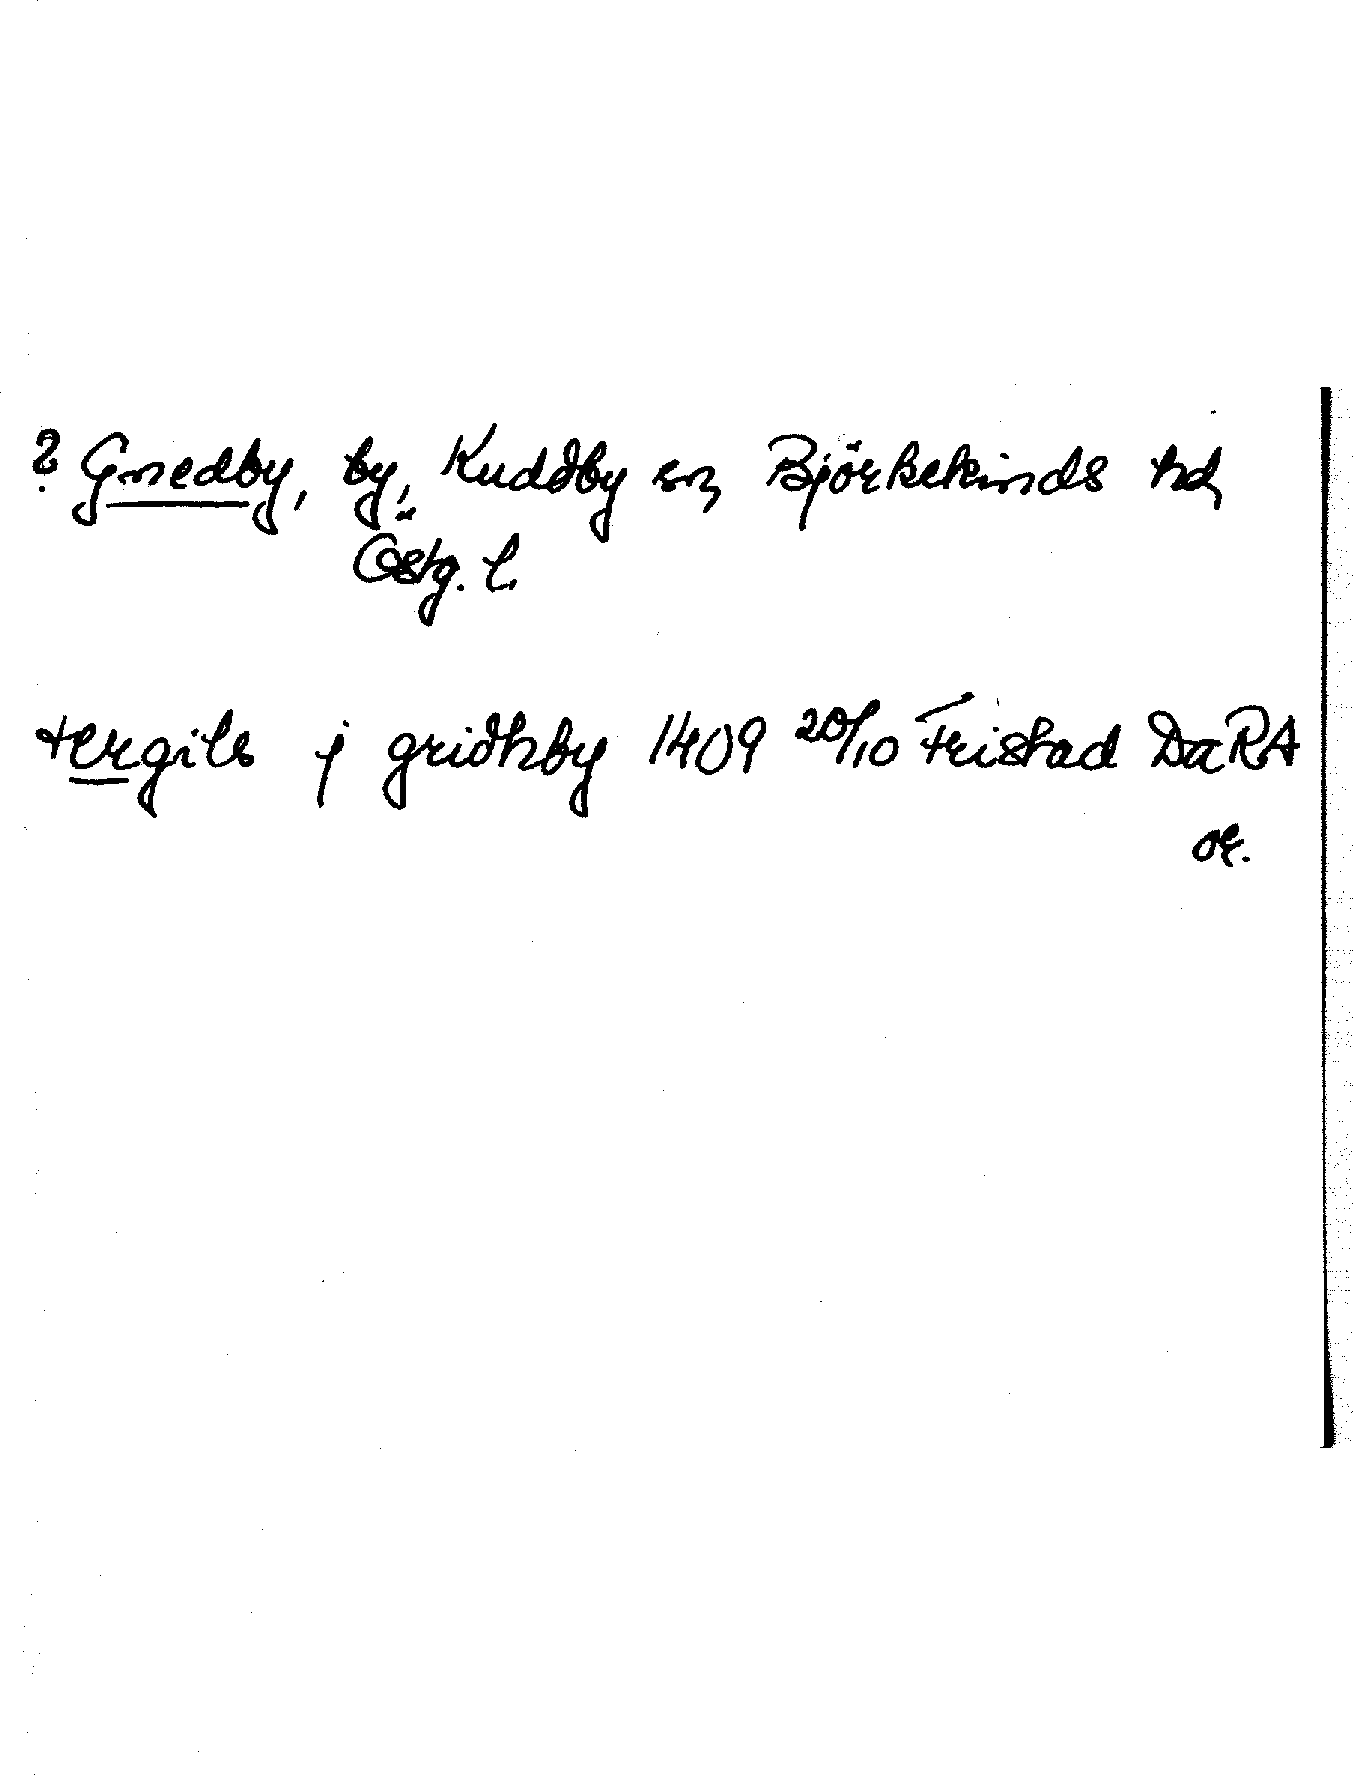 ? Gnedby, by, Kuddby sn, Björkekinds hd,
Östg. l.
tergils j gridhby 1409 20/10 Fristad DaRA
or.